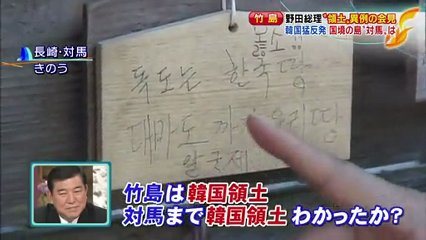 竹島 野田総理“領土”異例の会見
韓国猛反発 国境の島“対馬”は
長崎・対馬
きのう
독도는 한국땅
대마도 까지 우리땅
竹島は韓国領土
対馬まで韓国領土 わかったか?